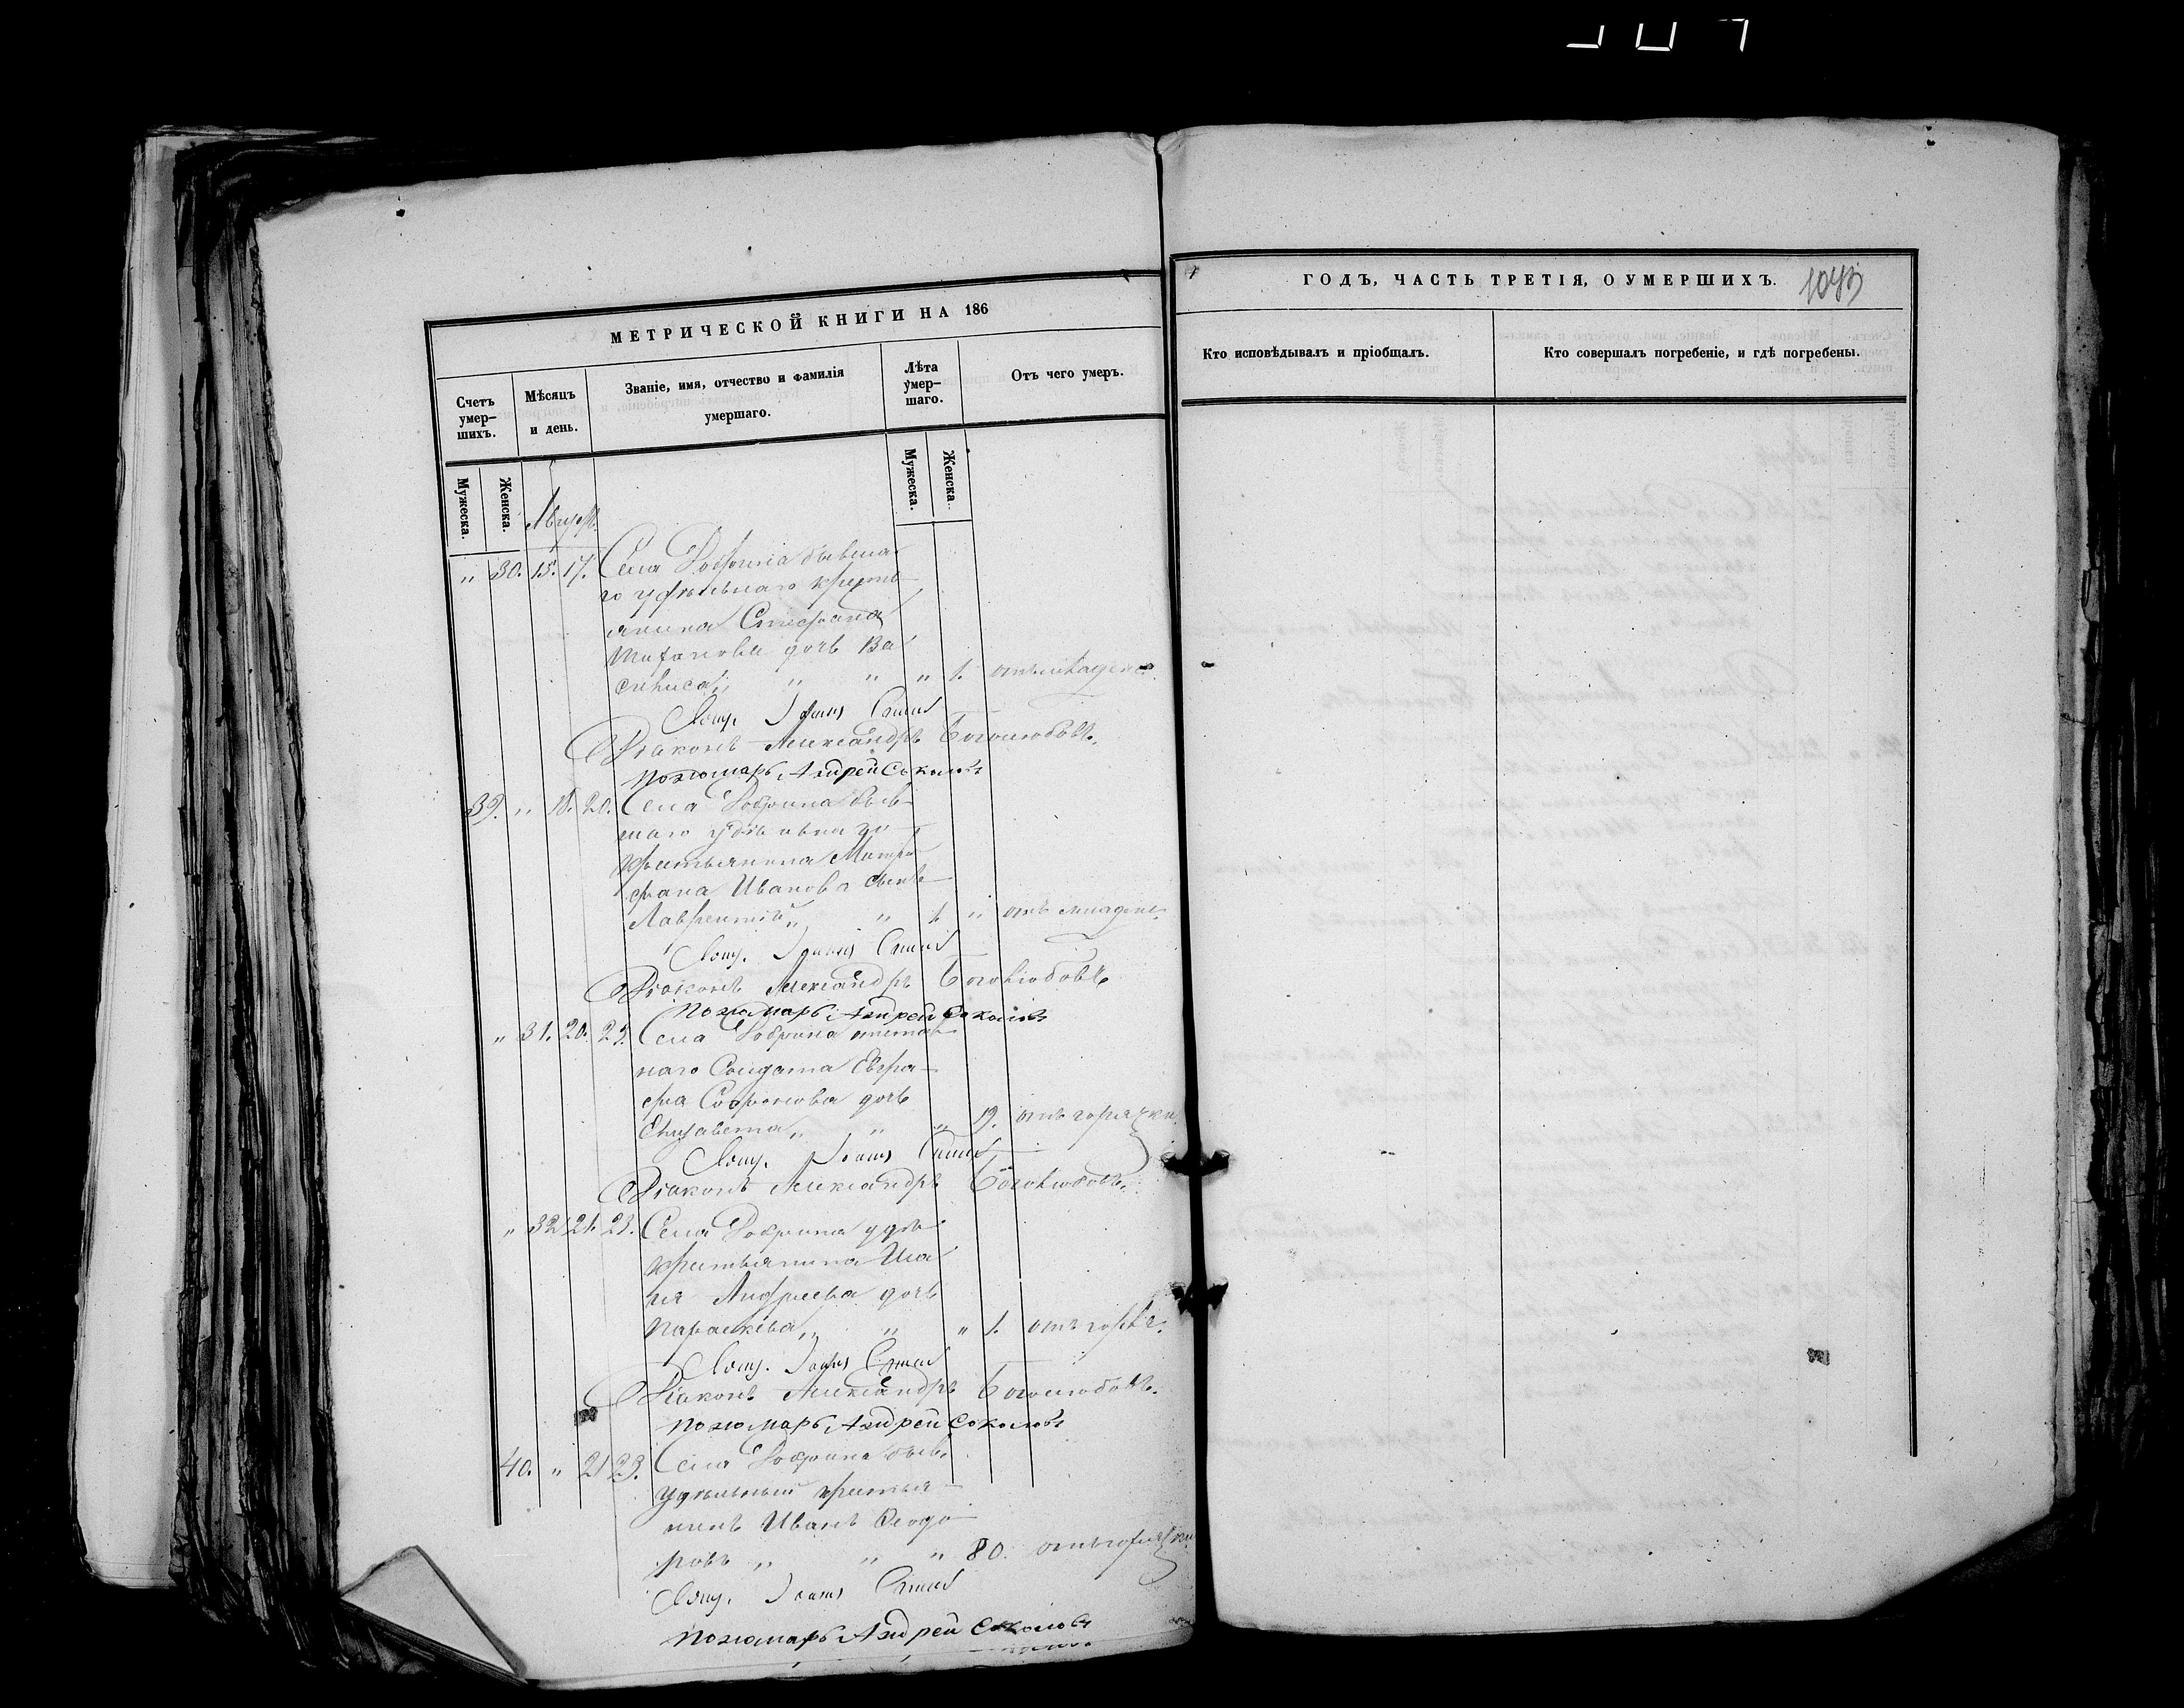 МЕТРИЧЕСКОЙ КНИГИ НА 186
Счетъ умер-шихъ.
Мѣсяцъ и день.
Званіе, имя, отчество и фамилія умершаго.
Лѣта умер-шаго.
Отъ чего умеръ.
Мужеска.
Женска.
Мужеска.
Женска.
Августъ.
" 30. 15. 17. Села Добрина бывша
го удѣльнаго кресть
янина Стефана
дочь Ва
силиса " " " 1. отъ младенч.
Свящ. Іоаннъ
Діаконъ Александръ Боголюбовъ.
Пономарь Андрей Соколовъ
39. " 18. 20. Села Добрина быв
шаго удѣльнаго
крестьянина Митро
фана Иванова сынъ
Лаврентій " " 1. " отъ младенч.
Свящ. Іоаннъ
Діаконъ Александръ Боголюбовъ
Пономарь Андрей Соколовъ
" 31. 20. 23. Села Добрина отстав
наго Солдата Евгра-
фа Софонова дочь
Елизавета " " " 19. отъ горячки.
Свящ. Іоаннъ
Діаконъ Александръ Боголюбовъ.
" 32. 21. 23. Села Добрина удѣл
крестьянина Иса
ія Андреева дочь
Параскева " " " 1. отъ горяч.
Свящ. Іоаннъ
Діаконъ Александръ Боголюбовъ.
Пономарь Андрей Соколовъ
40. " 21 23. Села Добрина быв.
удѣльный крестья-
нинъ Иванъ Ѳеодо
ровъ " " " 80. отъ горячки.
Свящ. Іоаннъ
Пономарь Андрей Соколовъ
ГОДЪ, ЧАСТЬ ТРЕТІЯ, О УМЕРШИХЪ.
Кто исповѣдывалъ и пріобщалъ.
Кто совершалъ погребеніе, и гдѣ погребены.